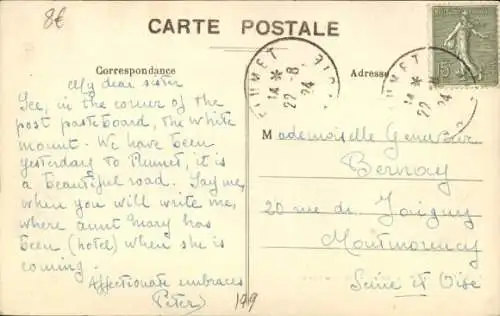 8€
CARTE POSTALE
Correspondance
Adresse
My dear sister
See, in the corner of the
post pasteboard, the white
mount. We have been
yesterday to Plumet, it is
a beautiful road. Say me,
when you will write me,
where aunt Mary has
been (hotel) when she is
coming.
Affectionate embraces
Peter
149
FLUMET
14 *
22 - 8
24
FLUMET
14 *
22
24
15
Mademoiselle
Bernay
20 rue de Joigny
Montmorency
Seine et Oise